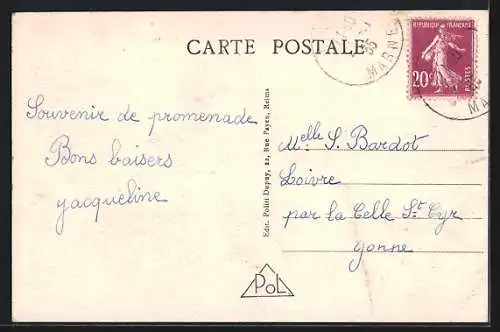 CARTE POSTALE
35
MARNE
REPUBLIQUE FRANÇAISE
20c
POSTES
MA
Souvenir de promenade
Bons baisers
Jacqueline
Edit. Pol
Rue Payen, Reims
Melle S. Bardot
Loivre
par la Celle St Cyr
Yonne
POL